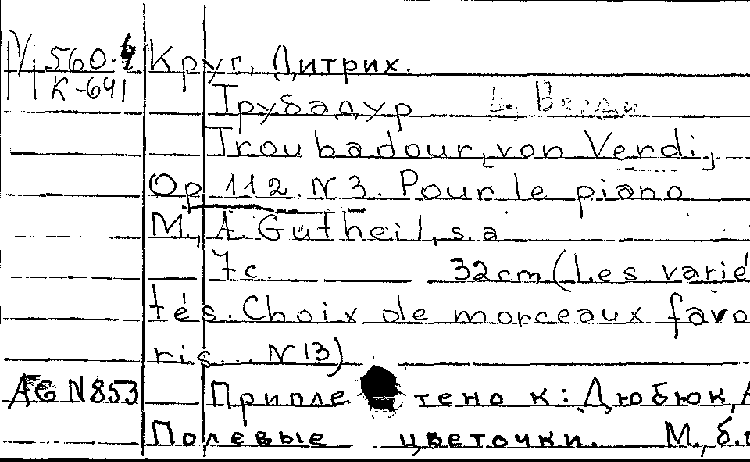 М 560.4 Круг, Дитрих.
К-641
Трубадур Верди
Troubadour, von Verdi,
Op 112. N 3. Pour le piano
M., A. Gutheil, s.a
7с. 32cm (Les varié
tés. Choix de morceaux favo
ris... N 13)
AG N853 Припле тено к: Дюбюк, А
Полевые цветочки. М., б.